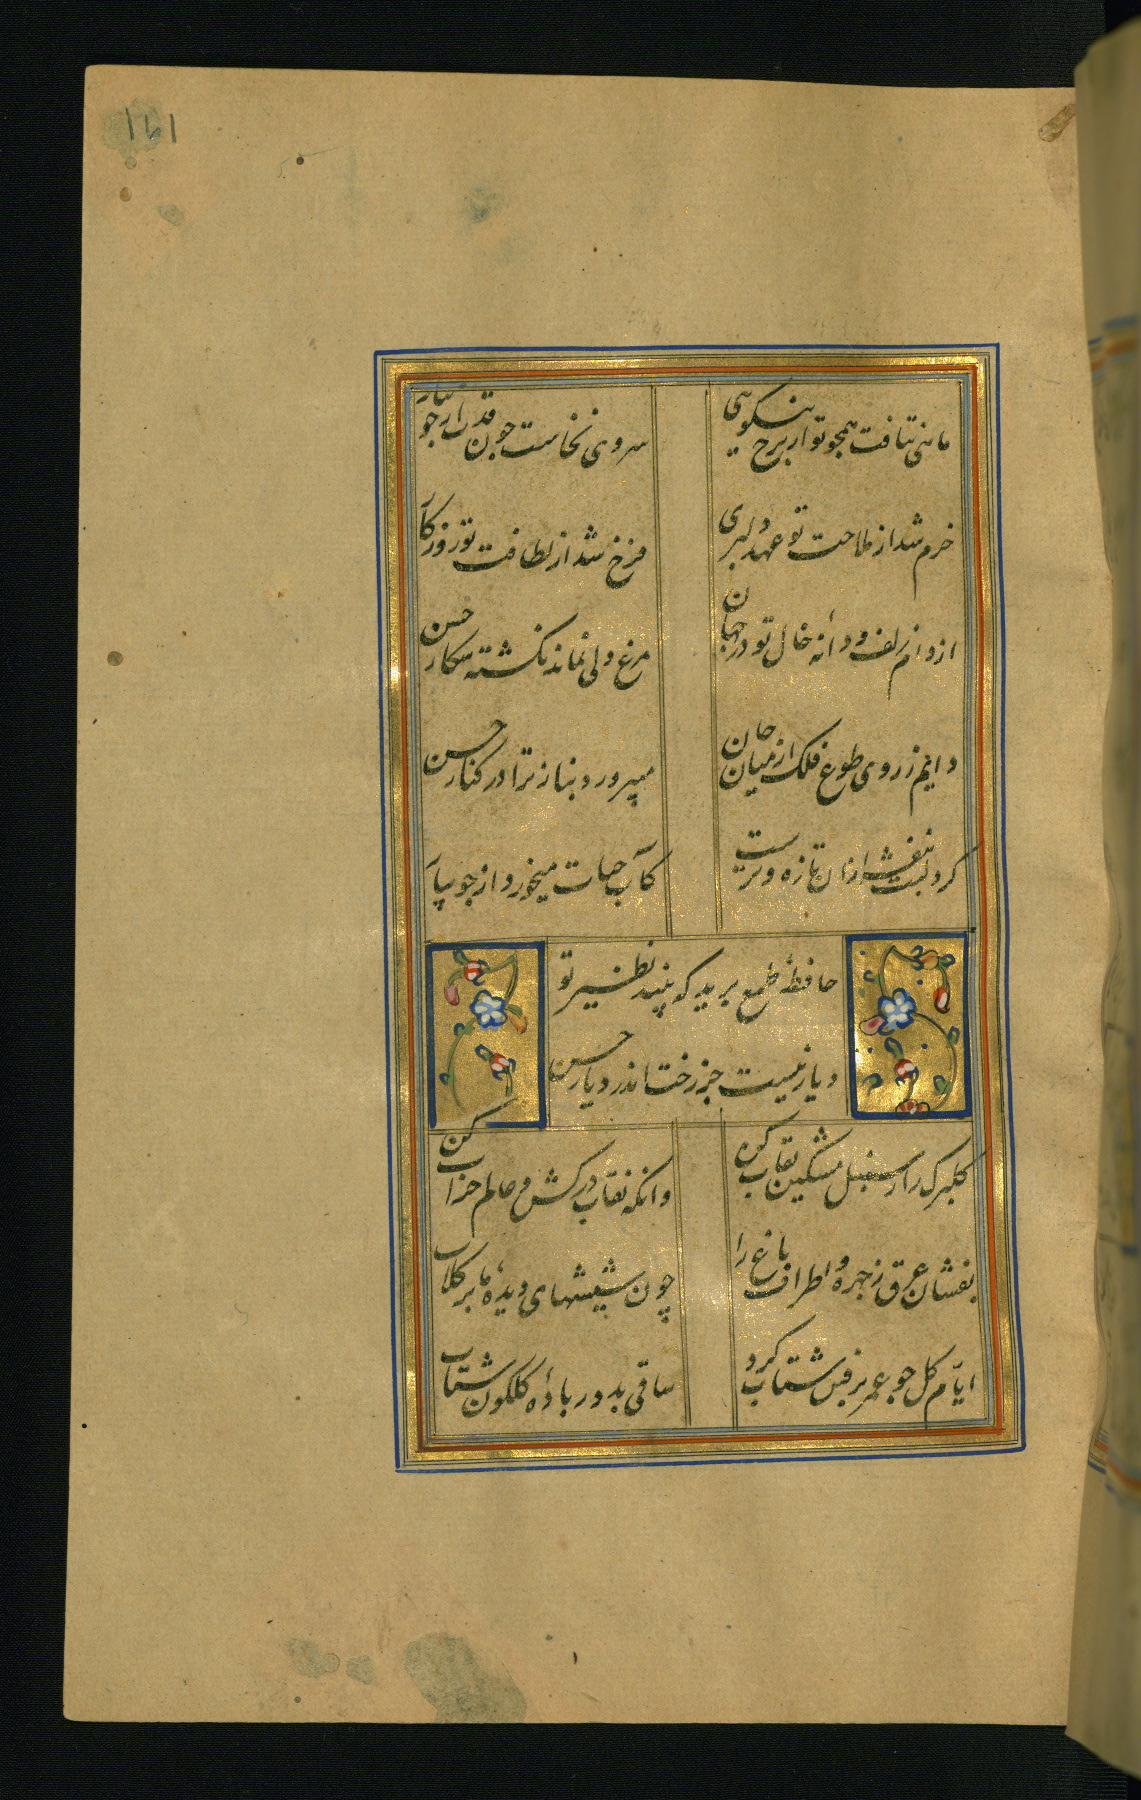 ۱۵۱
ماهی نتافت همچو تو از برج نیکویی
سروی نخاست چون قدت از جویبار
خرم شد از ملاحت تو عهد دلبری
فرخ شد از لطافت تو روزکار
از دام زلف و دانه خال تو در جهان
مرغ دلی نماند نکشته شکار حسن
دایم ز روی طوع فلک از میان جان
میپرورد بناز ترا در کنار حسن
کرد لبت بنفشه ازان تازه و ترست
کاب حیات میخورد از جویبار
حافظ طمع برید که بیند نظیر تو
دیار نیست جز رخت اندر دیار حسن
کلبرک را ز سنبل مشکین نقاب کن
وانکه نقاب درکش و عالم خراب کن
بفشان عرق ز چهره و اطراف باغ را
چون شیشهای دیده ما پر کلاب
ایام کل چو عمر برفتن شتاب کرد
ساقی بدور باده کلکون شتاب